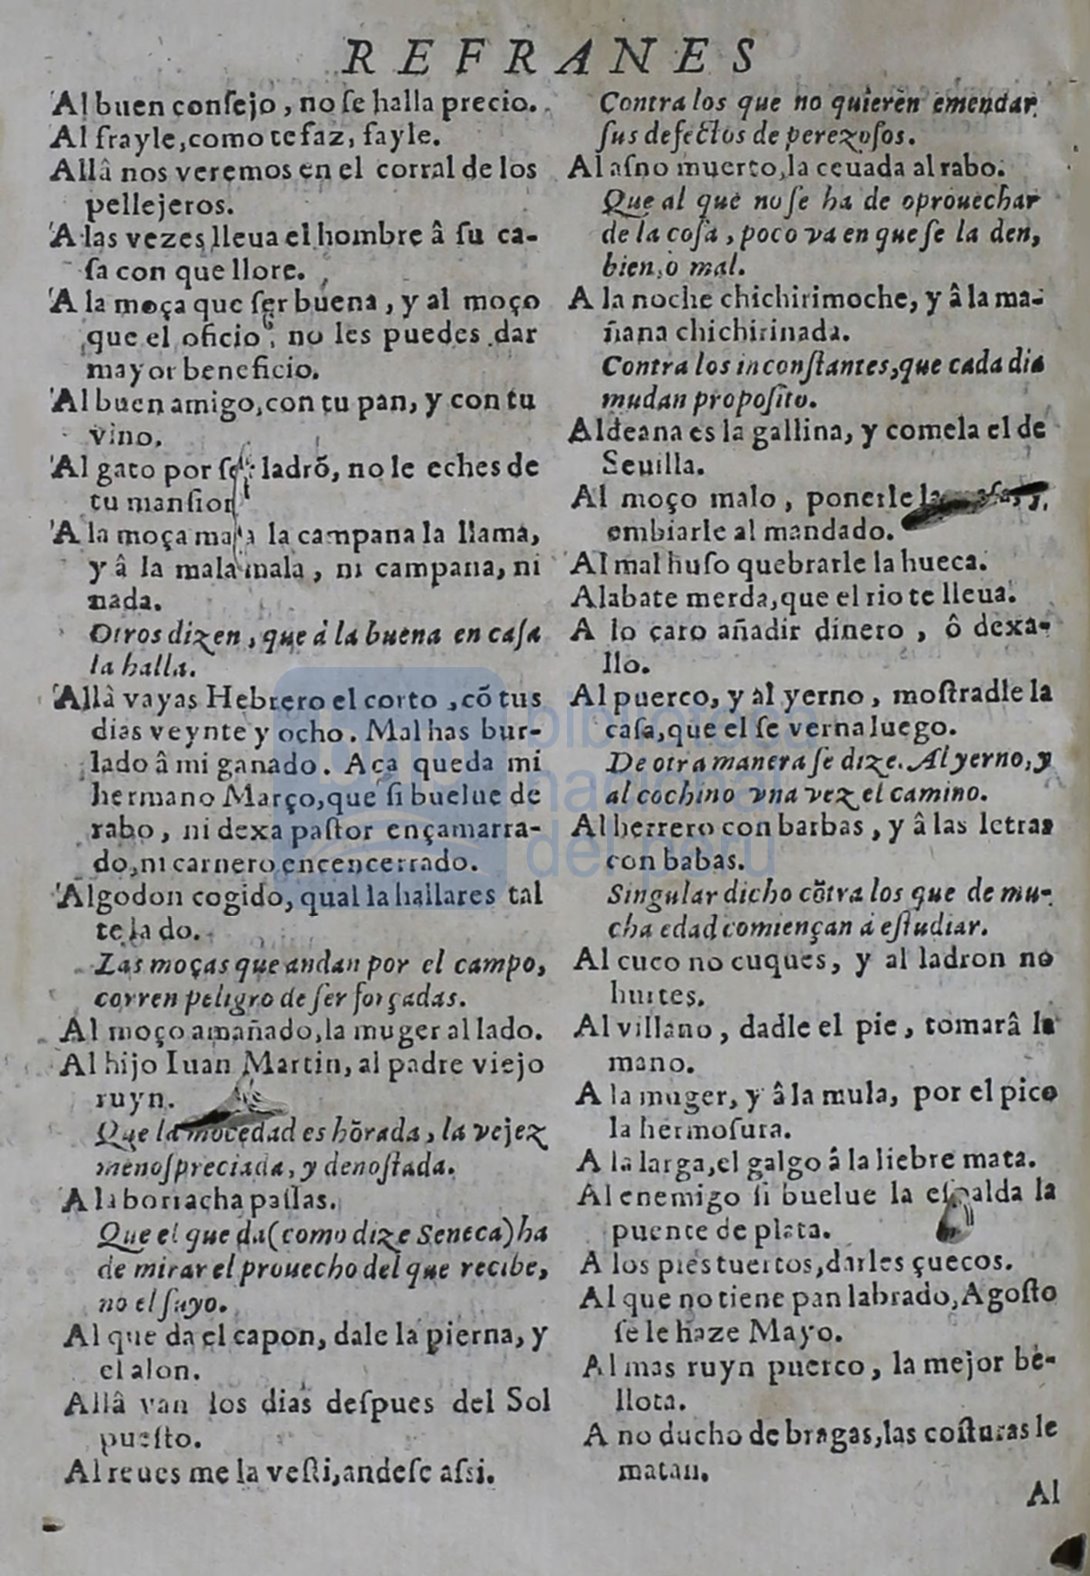 REFRANES
Al buen consejo, no se halla precio.
Al frayle, como te faz, fayle.
Allâ nos veremos en el corral de los
pellejeros.
A las vezes lleua el hombre â su ca-
sa con que llore.
A la moça que ser buena, y al moço
que el oficio, no les puedes dar
mayor beneficio.
Al buen amigo, con tu pan, y con tu
vino.
Al gato por ladrõ, no le eches de
tu mansion
A la moça mala la campana la llama,
y â la mala mala, ni campana, ni
nada.
Otros dizen, que â la buena en casa
la halla.
Allâ vayas Hebrero el corto, cõ tus
dias veynte y ocho. Mal has bur-
lado â mi ganado. Aça queda mi
hermano Março, que si buelue de
rabo, ni dexa pastor ençamarra-
do, ni carnero encencerrado.
Algodon cogido, qual la hallares tal
te la do.
Las moças que andan por el campo,
corren peligro de ser forçadas.
Al moço amañado, la muger al lado.
Al hijo Iuan Martin, al padre viejo
ruyn.
Que la mocedad es hõrada, la vejez
menospreciada, y denostada.
A la borracha passas.
Que el que da (como dize Seneca) ha
de mirar el prouecho del que recibe,
no el suyo.
Al que da el capon, dale la pierna, y
el alon.
Allâ van los dias despues del Sol
puesto.
Al reues me la vesti, andese assi.
Contra los que no quieren emendar
sus defectos de perezosos.
Al asno muerto, la ceuada al rabo.
Que al que no se ha de oprouechar
de la cosa, poco va en que se la den,
bien, o mal.
A la noche chichirimoche, y â la ma-
ñana chichirinada.
Contra los inconstantes, que cada dia
mudan proposito.
Aldeana es la gallina, y comela el de
Seuilla.
Al moço malo, ponerle la
embiarle al mandado.
Al mal huso quebrarle la hueca.
Alabate merda, que el rio te lleua.
A lo caro añadir dinero, ô dexa-
llo.
Al puerco, y al yerno, mostradle la
casa, que el se verna luego.
De otra manera se dize. Al yerno, y
al cochino vna vez el camino.
Al herrero con barbas, y â las letras
con babas.
Singular dicho cõtra los que de mu-
cha edad comiençan á estudiar.
Al cuco no cuques, y al ladron no
hurtes.
Al villano, dadle el pie, tomarâ la
mano.
A la muger, y â la mula, por el pico
la hermosura.
A la larga, el galgo â la liebre mata.
Al enemigo si buelue la espalda la
puente de plata.
A los pies tuertos, darles çuecos.
Al que no tiene pan labrado, Agosto
se le haze Mayo.
Al mas ruyn puerco, la mejor be-
llota.
A no ducho de bragas, las costuras le
matan.
Al
biblioteca
nacional
del perú